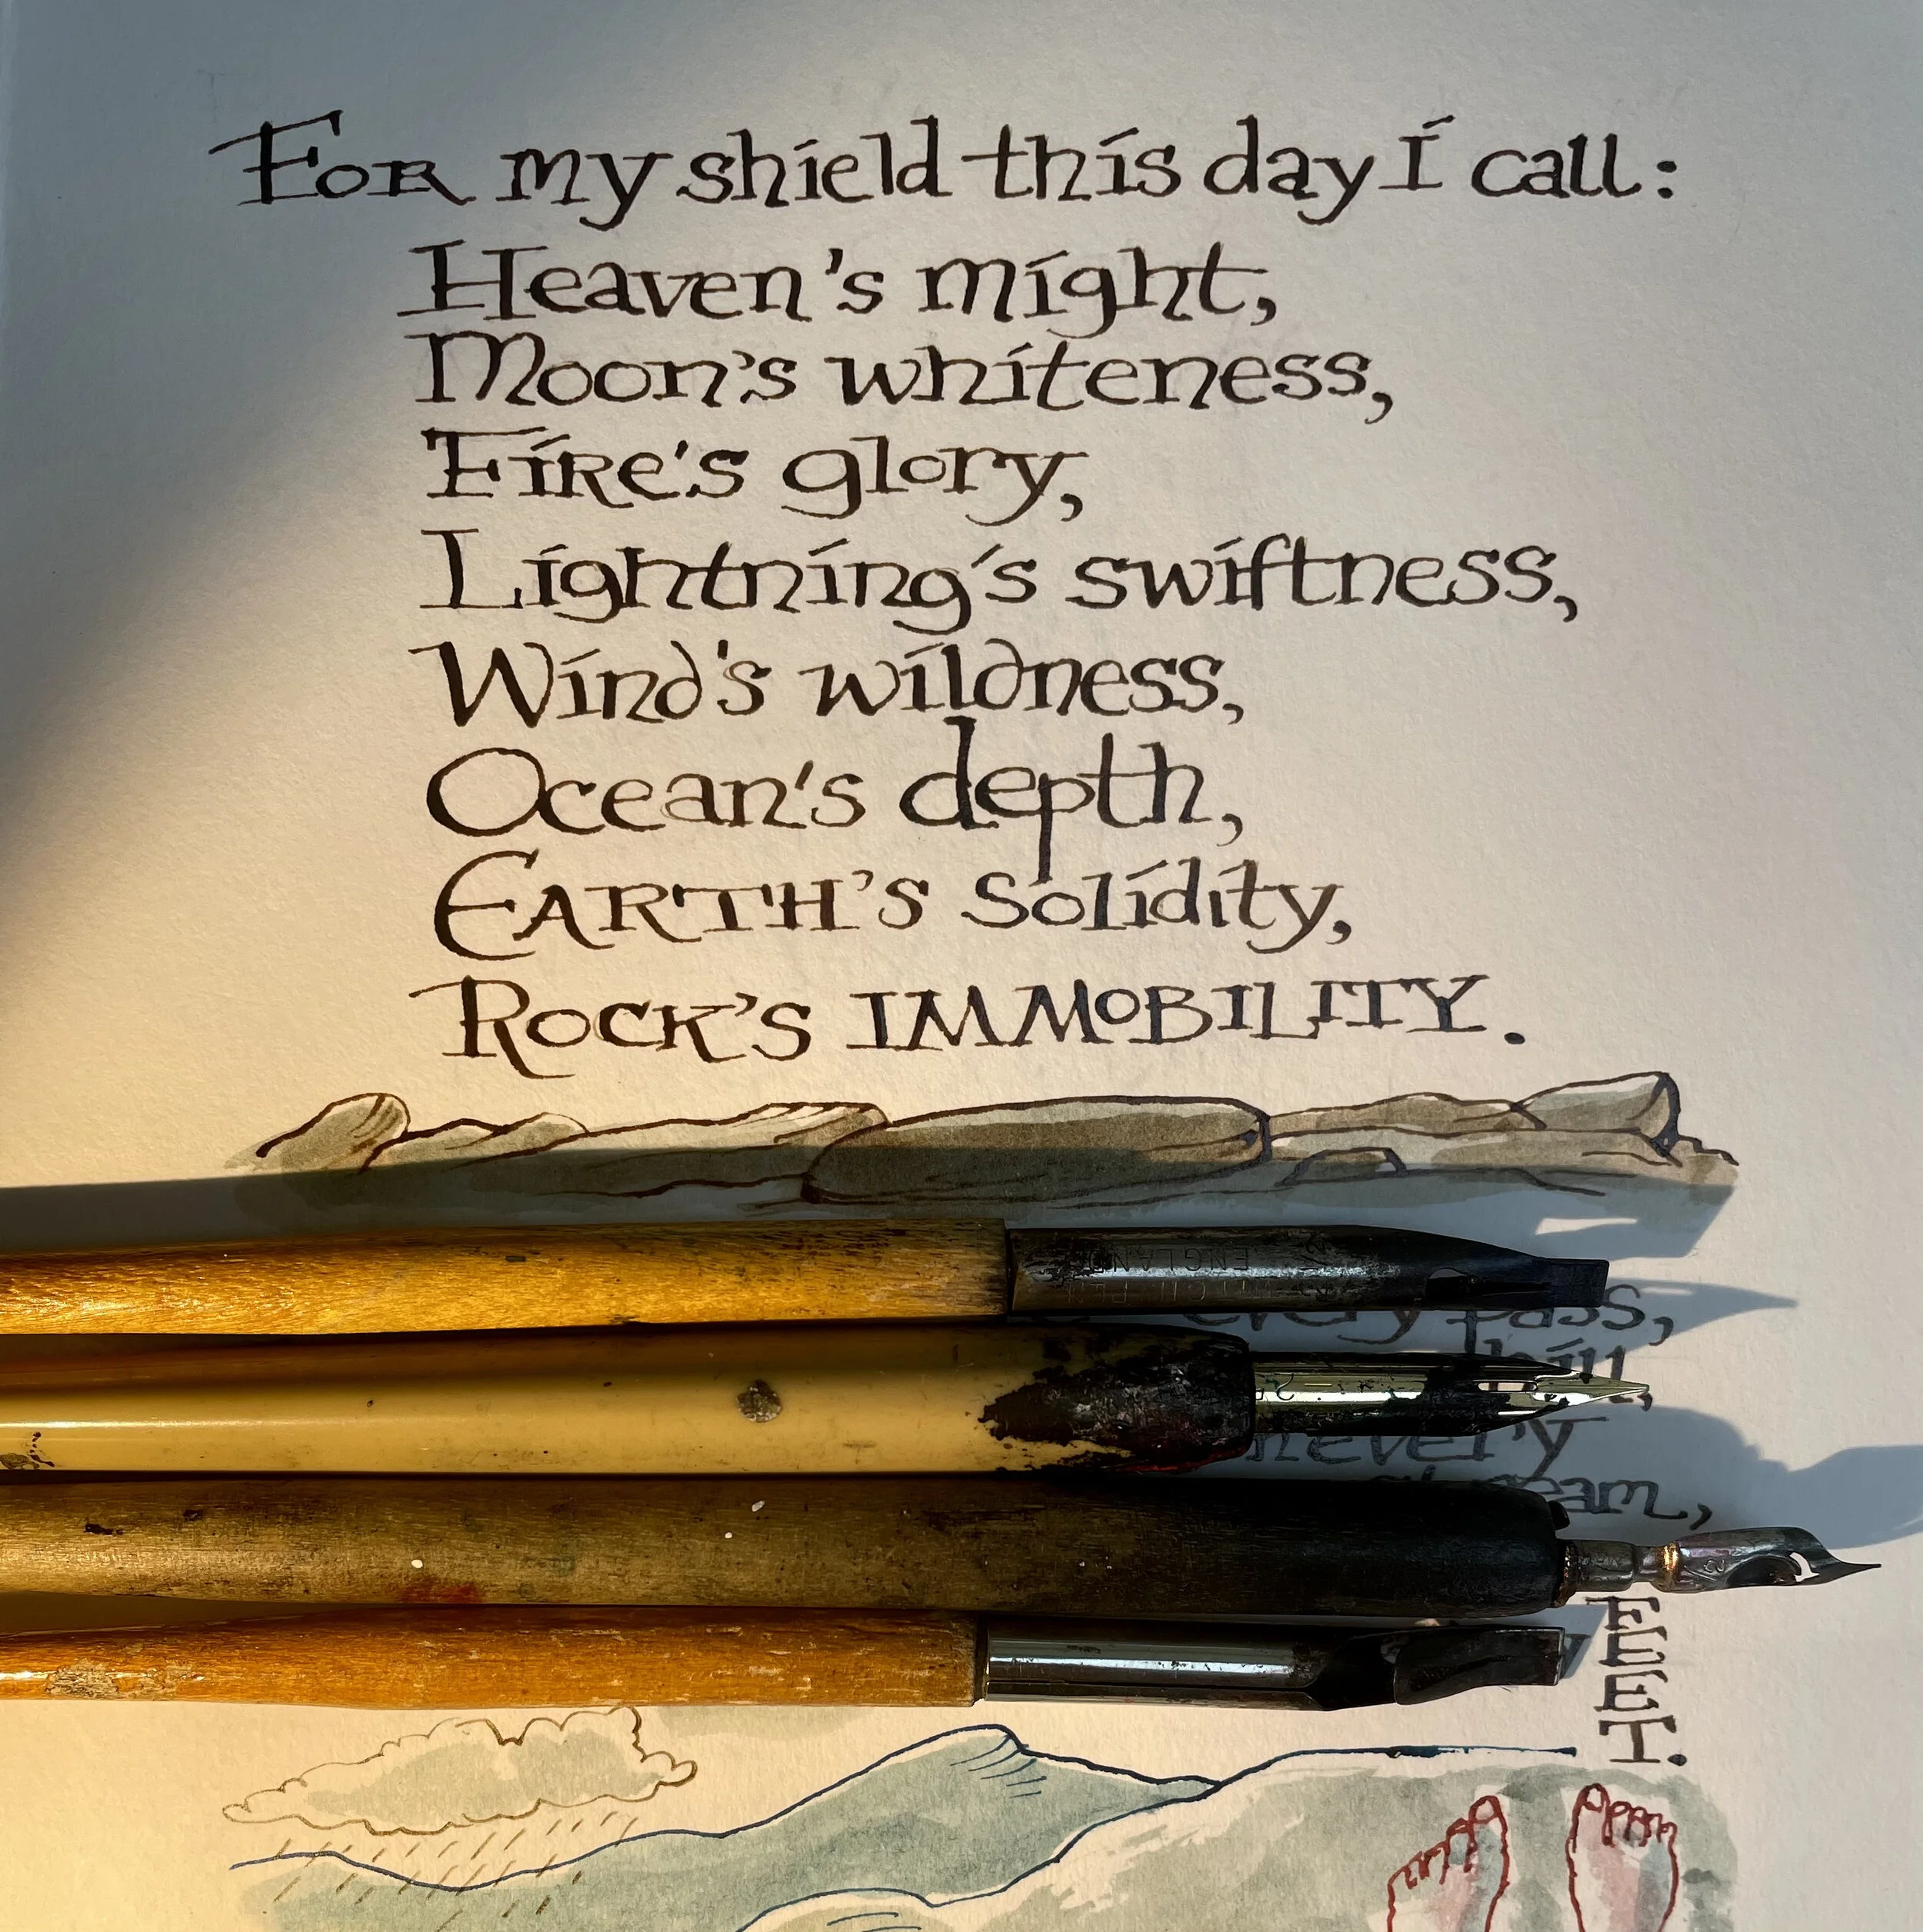 For my shield this day I call:
Heaven's might,
Moon's whiteness,
Fire's glory,
Lightning's swiftness,
Wind's wildness,
Ocean's depth,
EARTH'S Solidity,
ROCK'S IMMOBILITY.
ENGLAND
every pass,
hill,
every
FEET.